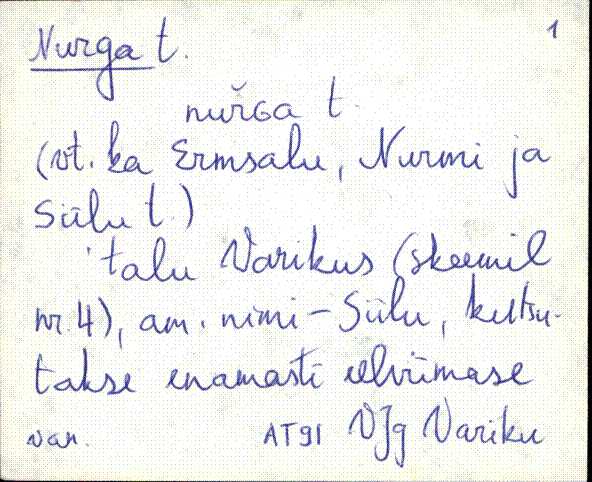 Nurga t. 1
nuřGa t.
(vt. ka Ermsalu, Nurmi ja
Siilu t.)
talu Varikus (skeemil
nr. 4), am. nimi - Siilu, kutsu-
takse enamasti eelviimase
van. AT91 VJg Variku